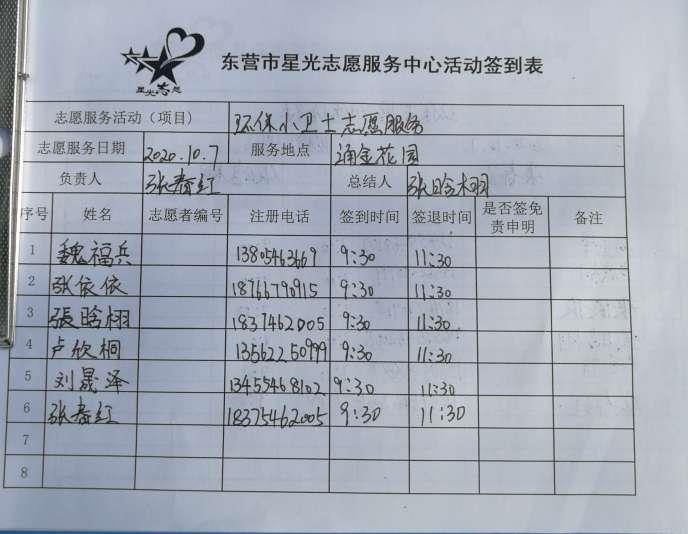 星光志愿
东营市星光志愿服务中心活动签到表
志愿服务活动（项目） 环保小卫士志愿服务
志愿服务日期 2020.10.7 服务地点 涌金花园
负责人 张春红 总结人 张晗栩
序号 姓名 志愿者编号 注册电话 签到时间 签退时间 是否签免责申明 备注
1 魏福兵 13805463669 9:30 11:30
2 张依依 18766790915 9:30 11:30
3 張晗栩 1837462005 9:30 11:30
4 卢欣桐 13562250999 9:30 11:30
5 刘晟泽 13455468102 9:30 11:30
6 张春红 18375462005 9:30 11:30
7
8